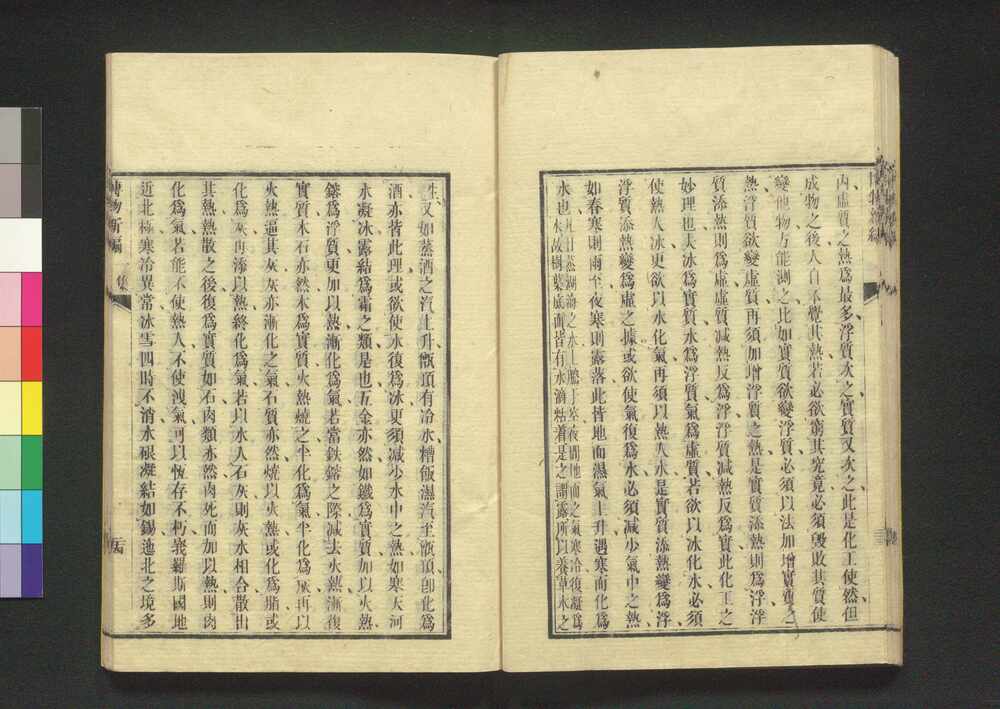 內虛質之熱爲最多浮質次之實質又次之此是化工使然但
成物之後人自不覺其熱若必欲窮其究竟必須毀敗其質使
變他物方能測之比如實質欲變浮質必須以法加增實質之
熱浮質欲變虛質再須加增浮質之熱是實質添熱則爲浮浮
質添熱則爲虛虛質減熱反爲浮浮質減熱反爲實此化工之
妙理也夫冰爲實質水爲浮質氣爲虛質若欲以冰化水必須
使熱入冰更欲以水化氣再須以熱入水是實質添熱變爲浮
浮質添熱變爲虛之據或欲使氣復爲水必須減少氣中之熱
如春寒則雨至夜寒則露落此皆地面濕氣上升遇寒而化爲
水也凡日蒸湖海之水上騰于空夜間地面之氣寒冷後凝爲
水故樹葉底面皆有水滴粘着是之謂露所以養草木之
生又如蒸酒之汽上升甑頂有冷水糟飯濕汽至甑頂卽化爲
酒亦皆此理或欲使水復爲冰更須減少水中之熱如寒天河
水凝冰露結爲霜之類是也五金亦然如鐵爲實質加以火熱
鎔爲浮質更加以熱漸化爲氣若當鉄鎔之際減去火熱漸復
實質木石亦然木爲實質火熱燒之半化爲氣半化爲灰再以
火熱逼其灰灰亦漸化之氣石質亦然燒以火熱或化爲脂或
化爲灰再添以熱終化爲氣若以水入石灰則灰水相合散出
其熱熱散之後復爲實質如石肉類亦然肉死而加以熱則肉
化爲氣若能不使熱入不使洩氣可以恆存不朽峩羅斯國地
近北極寒冷異常冰雪四時不消水根凝結如錫迤北之境多
博物新編 一集